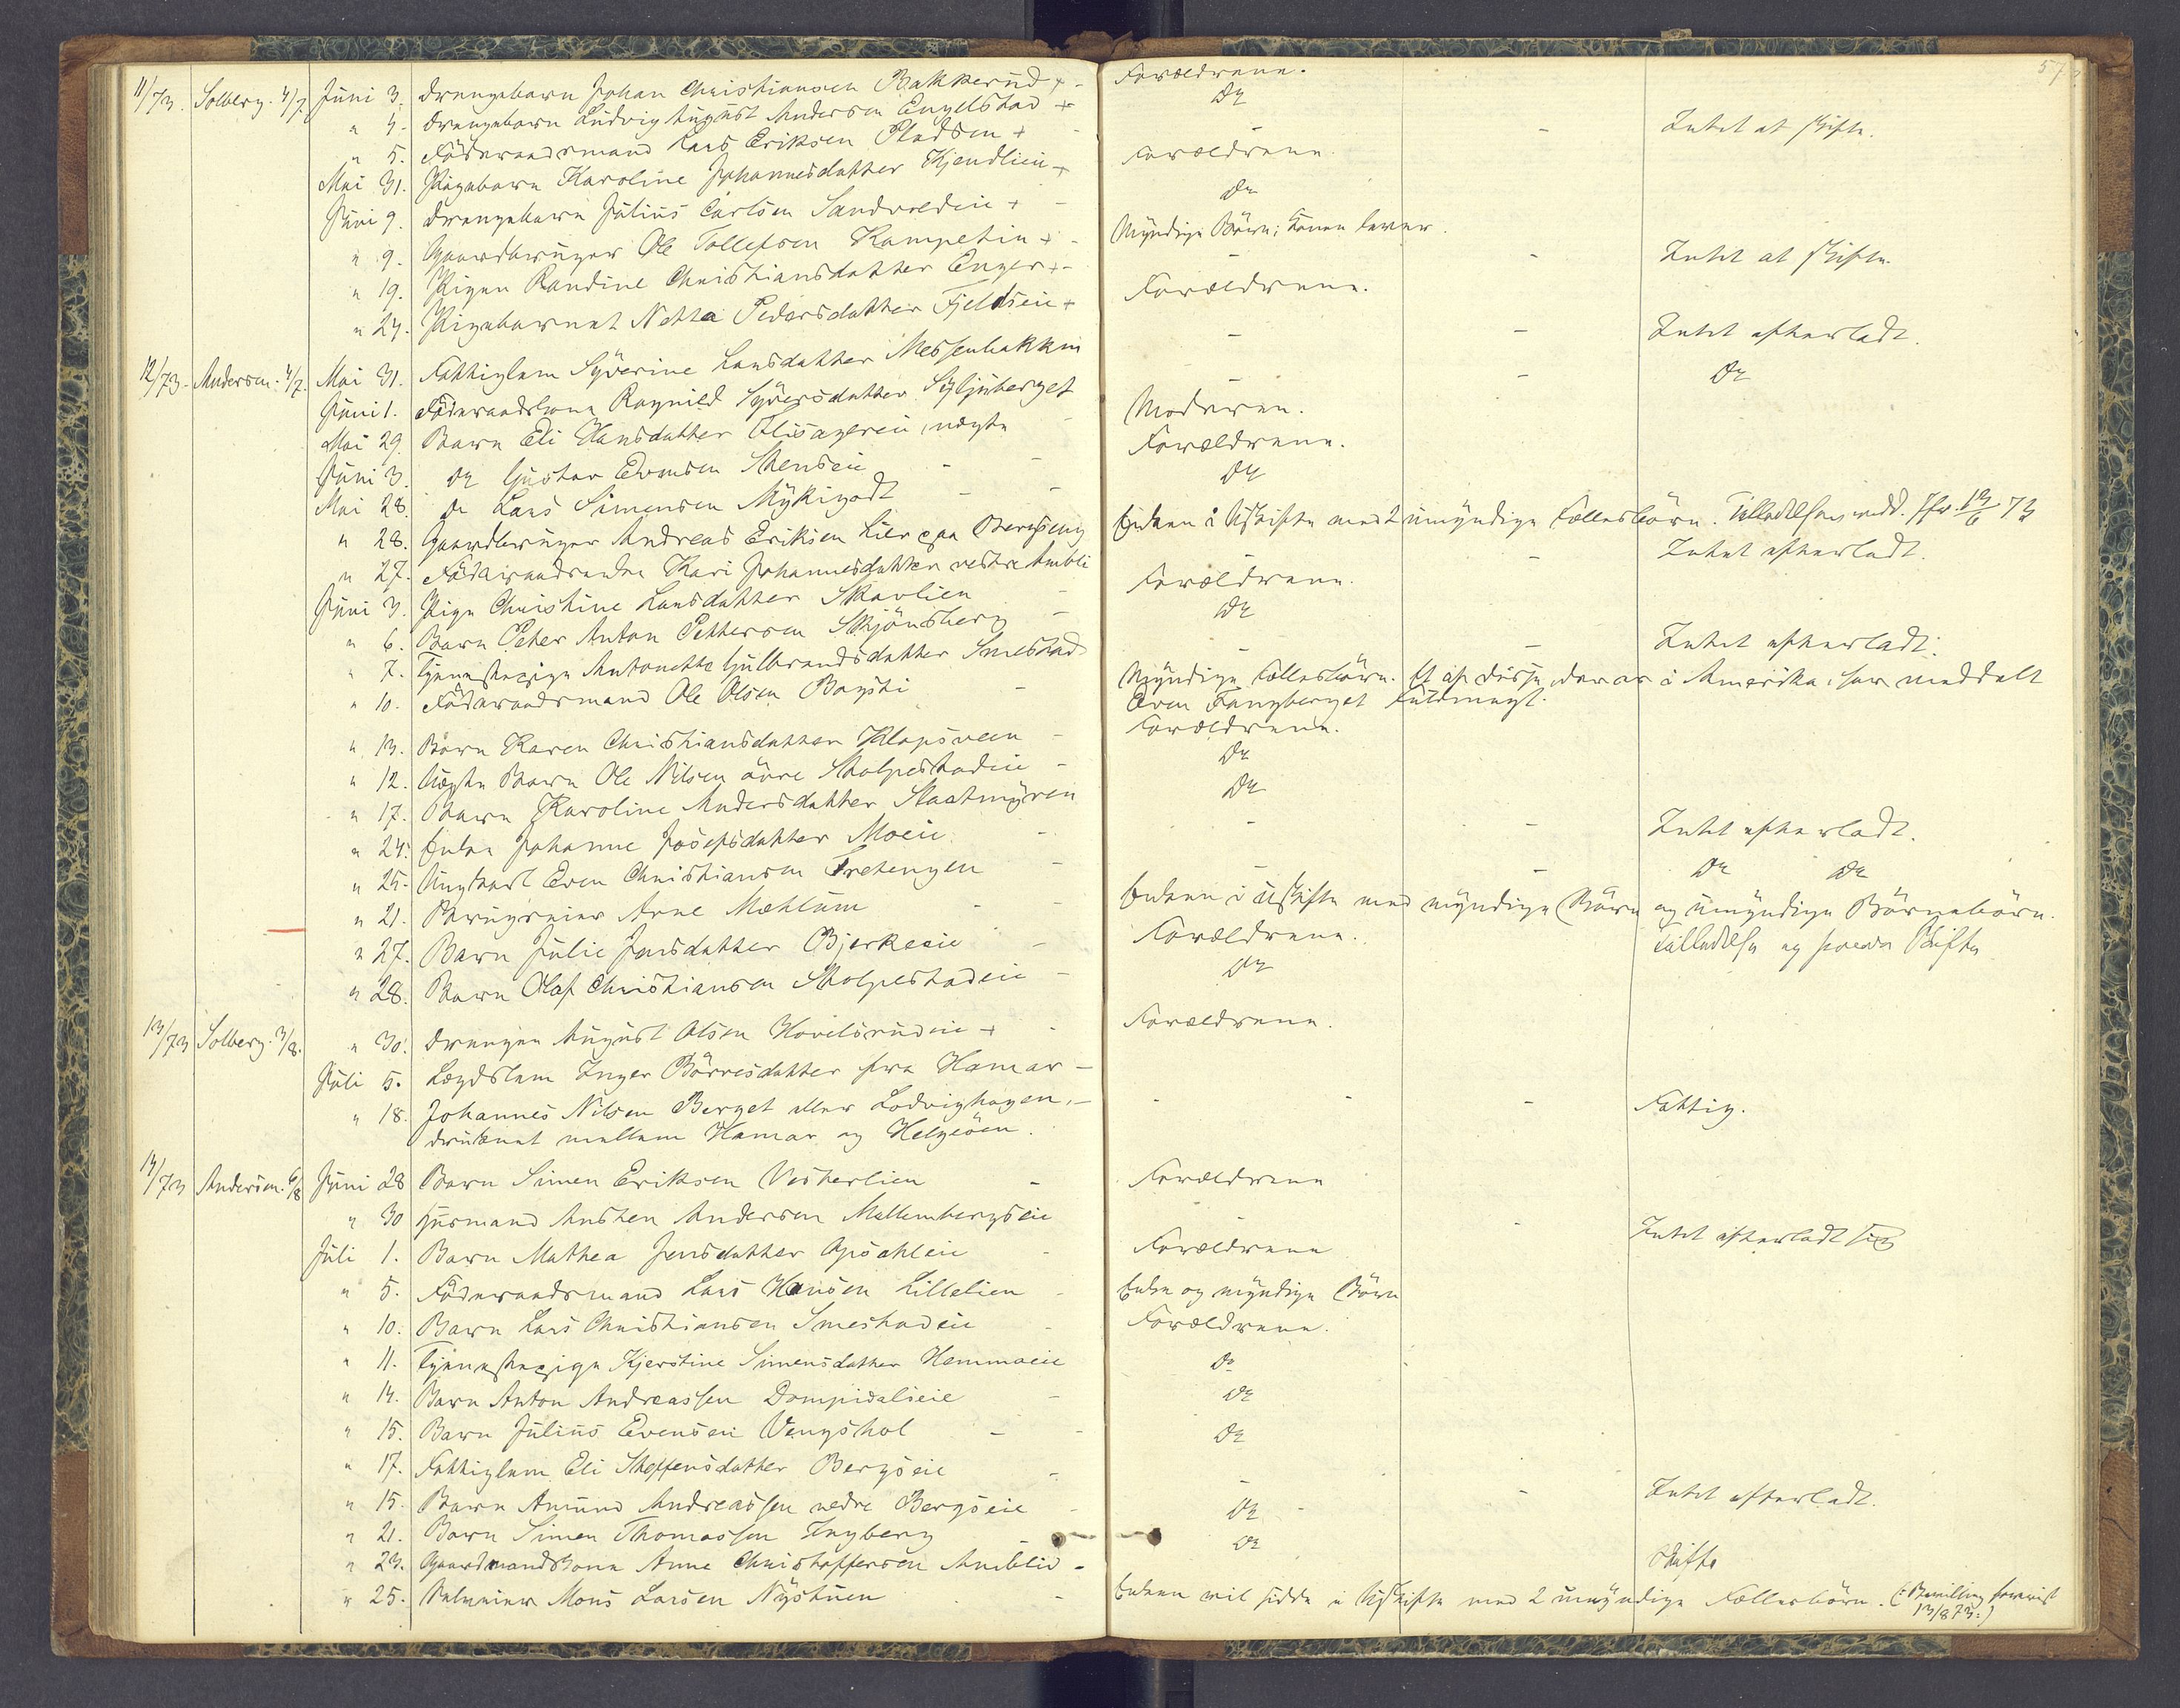 57
11/73. Solberg. 4/7. Juni 3. Drengebarn Johan Christiansen Bakkerud + - Forældrene.
" 4. Drengebarn Ludvig August Andersen Engelstad + D°
" 5. Föderaadsmand Lars Eriksen Pladsen + - - - Intet at skifte.
Mai 31. Pigebarn Karoline Johannesdatter Kjendlien + Forældrene.
Juni 9. Drengebarn Julius Carlsen Sandvoldeie + - D°
" 9. Gaardbruger Ole Tollefsen Kampetin + - Myndige Börn; Konen lever.
" 19. Pigen Randine Christiansdatter Enger + - - - Intet at skifte.
" 24. Pigebarnet Netta Pedersdatter Fjeldseie + Forældrene.
12/73. Andersen. 4/7. Mai 31. Fattiglem Syverine Larsdatter Messenbakken - - Intet efterladt.
Juni 1. Föderaadskone Ragnild Syversdatter Syljuberget - - D°
Mai 29. Barn Eli Hansdatter Olisagereie, uægte - Moderen.
Juni 3. D° Gustav Evensen Stenseie - - Forældrene.
Mai 28. D° Lars Simensen Mykigodt - - D°
" 28. Gaardbruger Andreas Eriksen Lier paa Bergseng Enken i Uskifte med 2 umyndige Fællesbörn. Tilladelse medd. 12/6 73
" 27. Föderaadsenke Kari Johannesdatter vestre Ambli - - Intet efterladt.
Juni 3. Pige Christine Larsdatter Skavlien - Forældrene.
" 6. Barn Peter Anton Pettersen Skjönsberg - D°
" 7. Tjenestepige Antonette Gulbrandsdatter Smestad - - Intet efterladt.
" 10. Föderaadsmand Ole Olsen Bagsti - Myndige Fællesbörn. Et af disse, der er i Amerika, har meddelt
Even Fangberget Fuldmagt.
" 13. Barn Karen Christiansdatter Klopsveen - Forældrene.
" 12. Uægte Barn Ole Nilsen övre Skolpestadeie - D°
" 17. Barn Karoline Andersdatter Slaatmyren D°
" 24. Enke Johanne Josefsdatter Moeie - - - Intet efterladt.
" 25. Ungkarl Even Christiansen Tretengen - - - D° D°
" 21. Brugseier Arne Mæhlum - - Enken i Uskifte med myndige Börn og umyndige Börnebörn.
Tilladelse og Skifte
" 27. Barn Julie Jensdatter Bjerkeeie - Forældrene.
" 28. Barn Olaf Christiansen Skolpestadeie - D°
13/73 Solberg. 3/8. " 30. Drengen August Olsen Hovelsrudeie + - Forældrene.
Juli 5. Lægdslem Inger Börresdatter fra Hamar -
" 18. Johannes Nilsen Berget eller Lodvighagen, - - - - Fattig.
druknet mellem Hamar og Helgeöen.
14/73 Andersen. 6/8 Juni 28 Barn Simen Eriksen Vesterlien - Forældrene
" 30 Husmand Austen Andersen Mellembergseie - - Intet efterladt sig
Juli 1. Barn Mathea Jensdatter Opsahleie - Forældrene
" 5. Föderaadsmand Lars Hansen Lillelien - Enke og myndige Börn
" 10. Barn Lars Christiansen Smestadeie - Forældrene.
" 11. Tjenestepige Kjerstine Simensdatter Hemmaeie D°
" 14. Barn Anton Andreassen Dompidalseie - D°
" 15. Barn Julius Evensen Vengshol - - D°
" 17. Fattiglem Eli Steffensdatter Bergseie - - - Intet efterladt.
" 15. Barn Amund Andreassen nedre Bergseie - D° -
" 21. Barn Simen Thomassen Ingberg - D°
" 23. Gaardmandskone Anne Christoffersen Amblie - Skifte
" 25. Selveier Mons Larsen Nystuen - Enken vil sidde i Uskifte med 2 umyndige Fællesbörn. (: Bevilling
13/8 73 :)